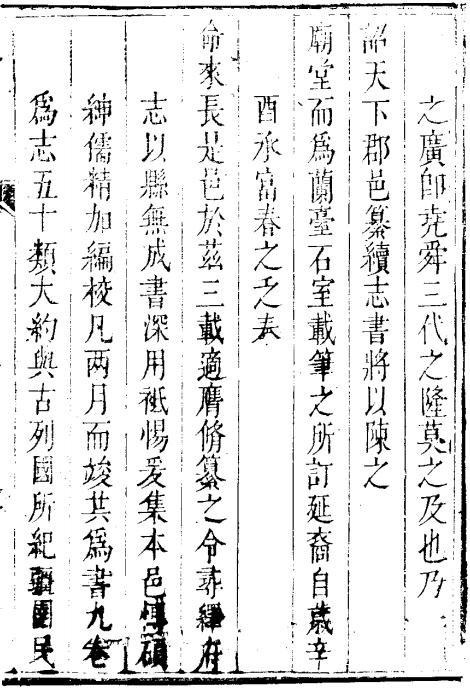 之廣即堯舜三代之隆莫之及也乃
詔天下郡邑纂續志書將以陳之
廟堂而爲蘭臺石室載筆之所訂延裔自歲辛
酉承富春之乏奉
命來長是邑於茲三載適膺脩纂之令尋繹府
志以縣無成書深用祗惕爰集本邑博碩
紳儒精加編校凡两月而竣其爲書九卷
爲志五十類大約與古列國所紀疆圉民